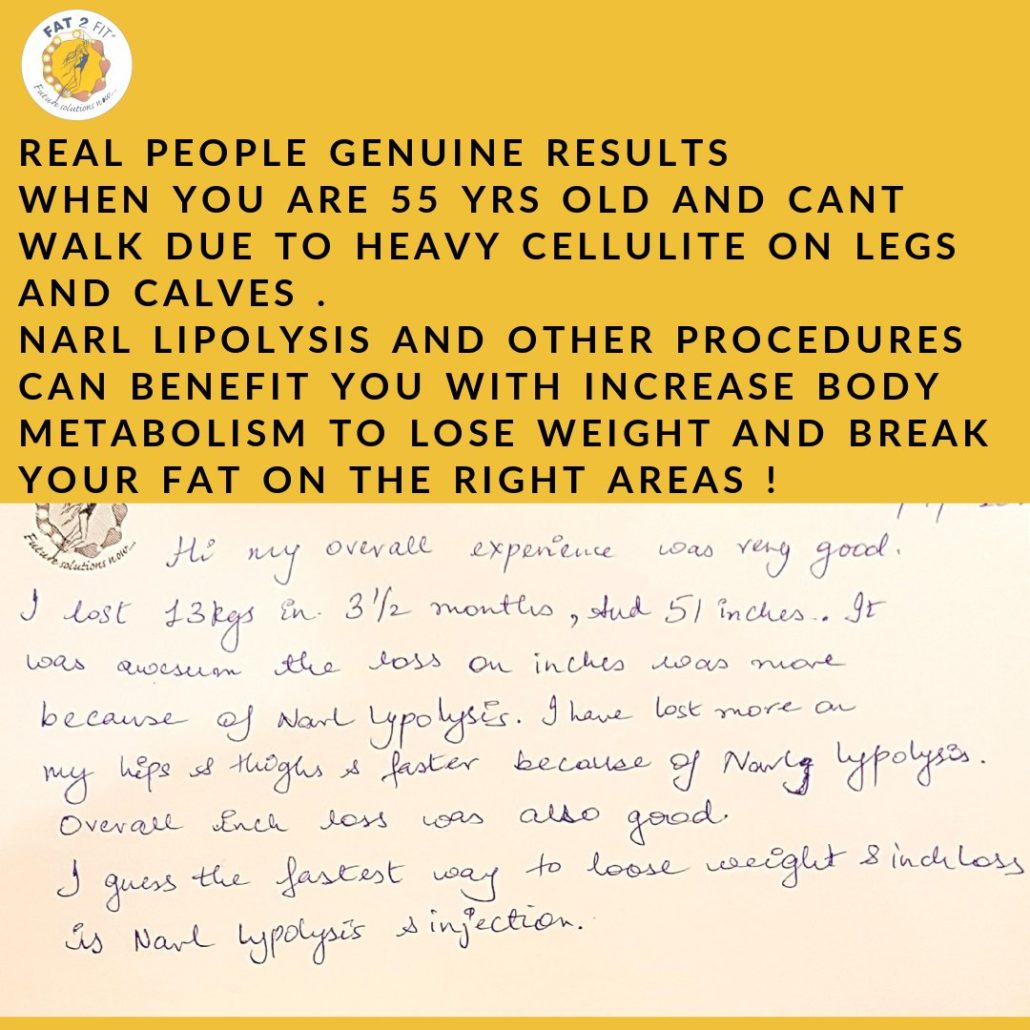 FAT 2 FIT
Future solutions now...
REAL PEOPLE GENUINE RESULTS
WHEN YOU ARE 55 YRS OLD AND CANT
WALK DUE TO HEAVY CELLULITE ON LEGS
AND CALVES .
NARL LIPOLYSIS AND OTHER PROCEDURES
CAN BENEFIT YOU WITH INCREASE BODY
METABOLISM TO LOSE WEIGHT AND BREAK
YOUR FAT ON THE RIGHT AREAS !
Future solutions now...
Hi my overall experience was very good.
I lost 13kgs in. 3 1/2 months, And 51 inches.. It
was awesum the loss on inches was more
because of Narl lypolysis. I have lost more on
my hips & thighs & faster because of Narl lypolysis.
Overall inch loss was also good.
I guess the fastest way to loose weight & inch loss
is Narl lypolysis & injection.